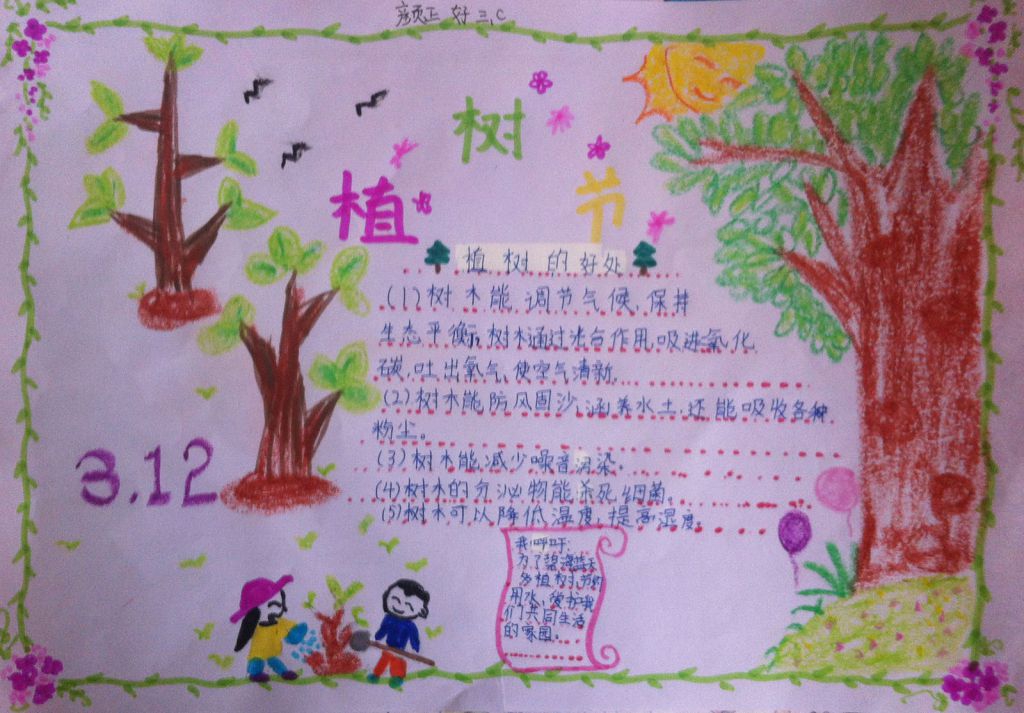 颜正好 三.C
植树节
植树的好处
(1)树木能调节气候,保持
生态平衡,树木通过光合作用,吸进氧化
碳,吐出氧气,使空气清新。
(2)树木能防风固沙,涵养水土,还能吸收各种
粉尘。
(3)树木能减少噪音污染。
(4)树木的分泌物能杀死细菌。
(5)树木可以降低温度,提高湿度。
3.12
我呼吁:
为了碧海蓝天
多植树,节约
用水,爱护我
们共同生活
的家园。